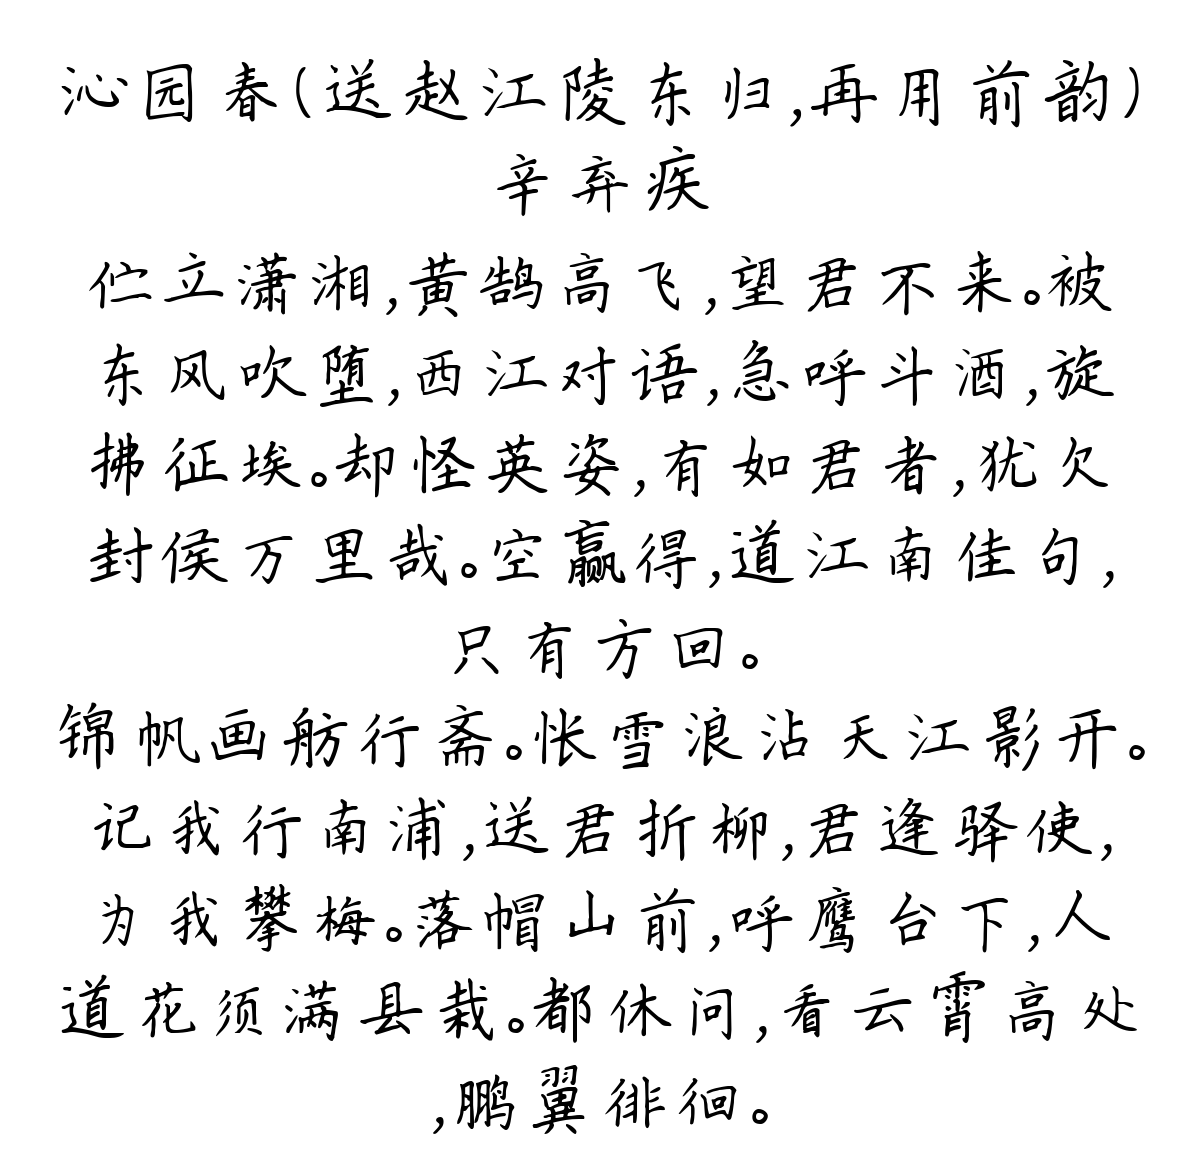 沁园春(送赵江陵东归,再用前韵)
辛弃疾
伫立潇湘,黄鹄高飞,望君不来。被
东风吹堕,西江对语,急呼斗酒,旋
拂征埃。却怪英姿,有如君者,犹欠
封侯万里哉。空赢得,道江南佳句,
只有方回。
锦帆画舫行斋。怅雪浪沾天江影开。
记我行南浦,送君折柳,君逢驿使,
为我攀梅。落帽山前,呼鹰台下,人
道花须满县栽。都休问,看云霄高处
,鹏翼徘徊。